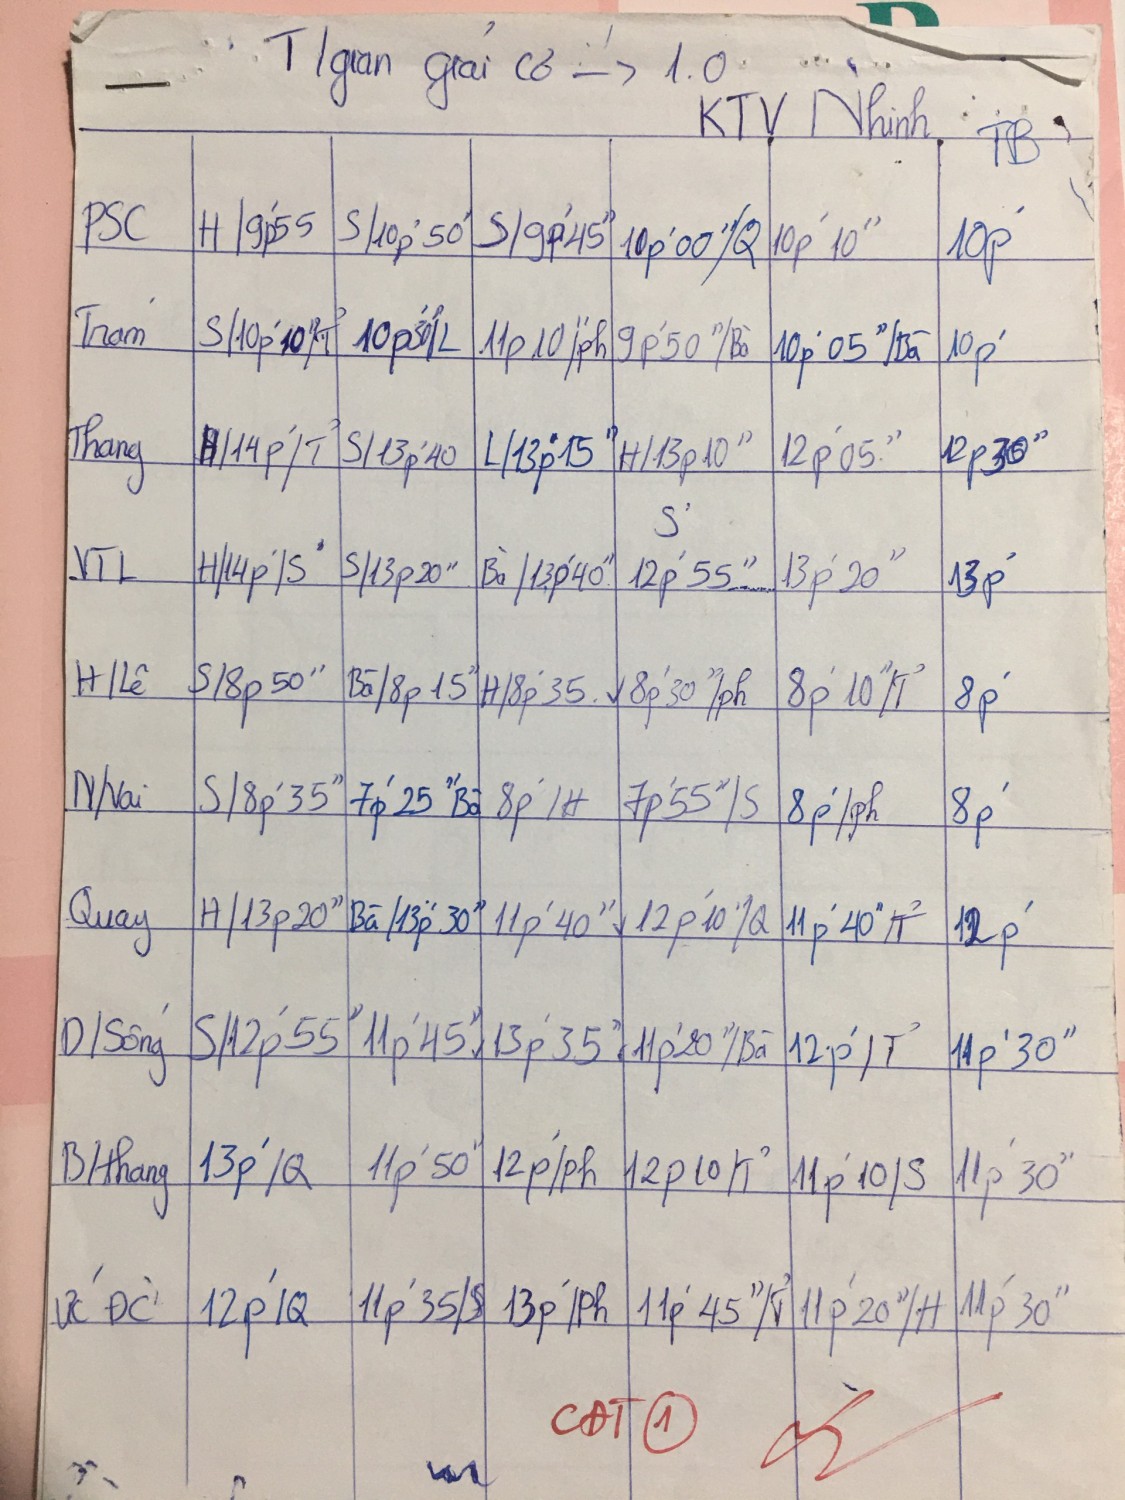 T/gian giái cơ -> 1.0
KTV Nhinh TB
PSC H/9p'55 S/10p'50' S/9p'45" 10p'00"/Q 10p'10" 10p'
Trám S/10p'10"/T² 10p30"/L 11p10"/ph 9p'50"/Bà 10p'05"/Bà 10p'
Thang H/14p'/T² S/13p'40 L/13p'15" H/13p10" 12p'05" 12p30"
S'
VTL H/14p'/S S/13p20" Bà/13p'40" 12p'55" 13p'20" 13p'
H/Lê S/8p50" Bà/8p15" H/8p'35 8p'30"/ph 8p'10"/T² 8p'
N/Vai S/8p'35" 7p'25"Bà 8p'/H 7p'55"/S 8p'/ph 8p'
Quay H/13p20" Bà/13p'30" 11p'40" 12p'10"/Q 11p'40"/T² 12p'
D/Sống S/12p'55" 11p'45" 13p'35" 11p'20"/Bà 12p'/T² 11p'30"
B/thang 13p'/Q 11p'50" 12p'/ph 12p10/T² 11p'10/S 11p'30"
ƯC ĐC 12p'/Q 11p'35/S 13p'/Ph 11p'45"/T² 11p'20"/H 11p'30"
CĐT 1